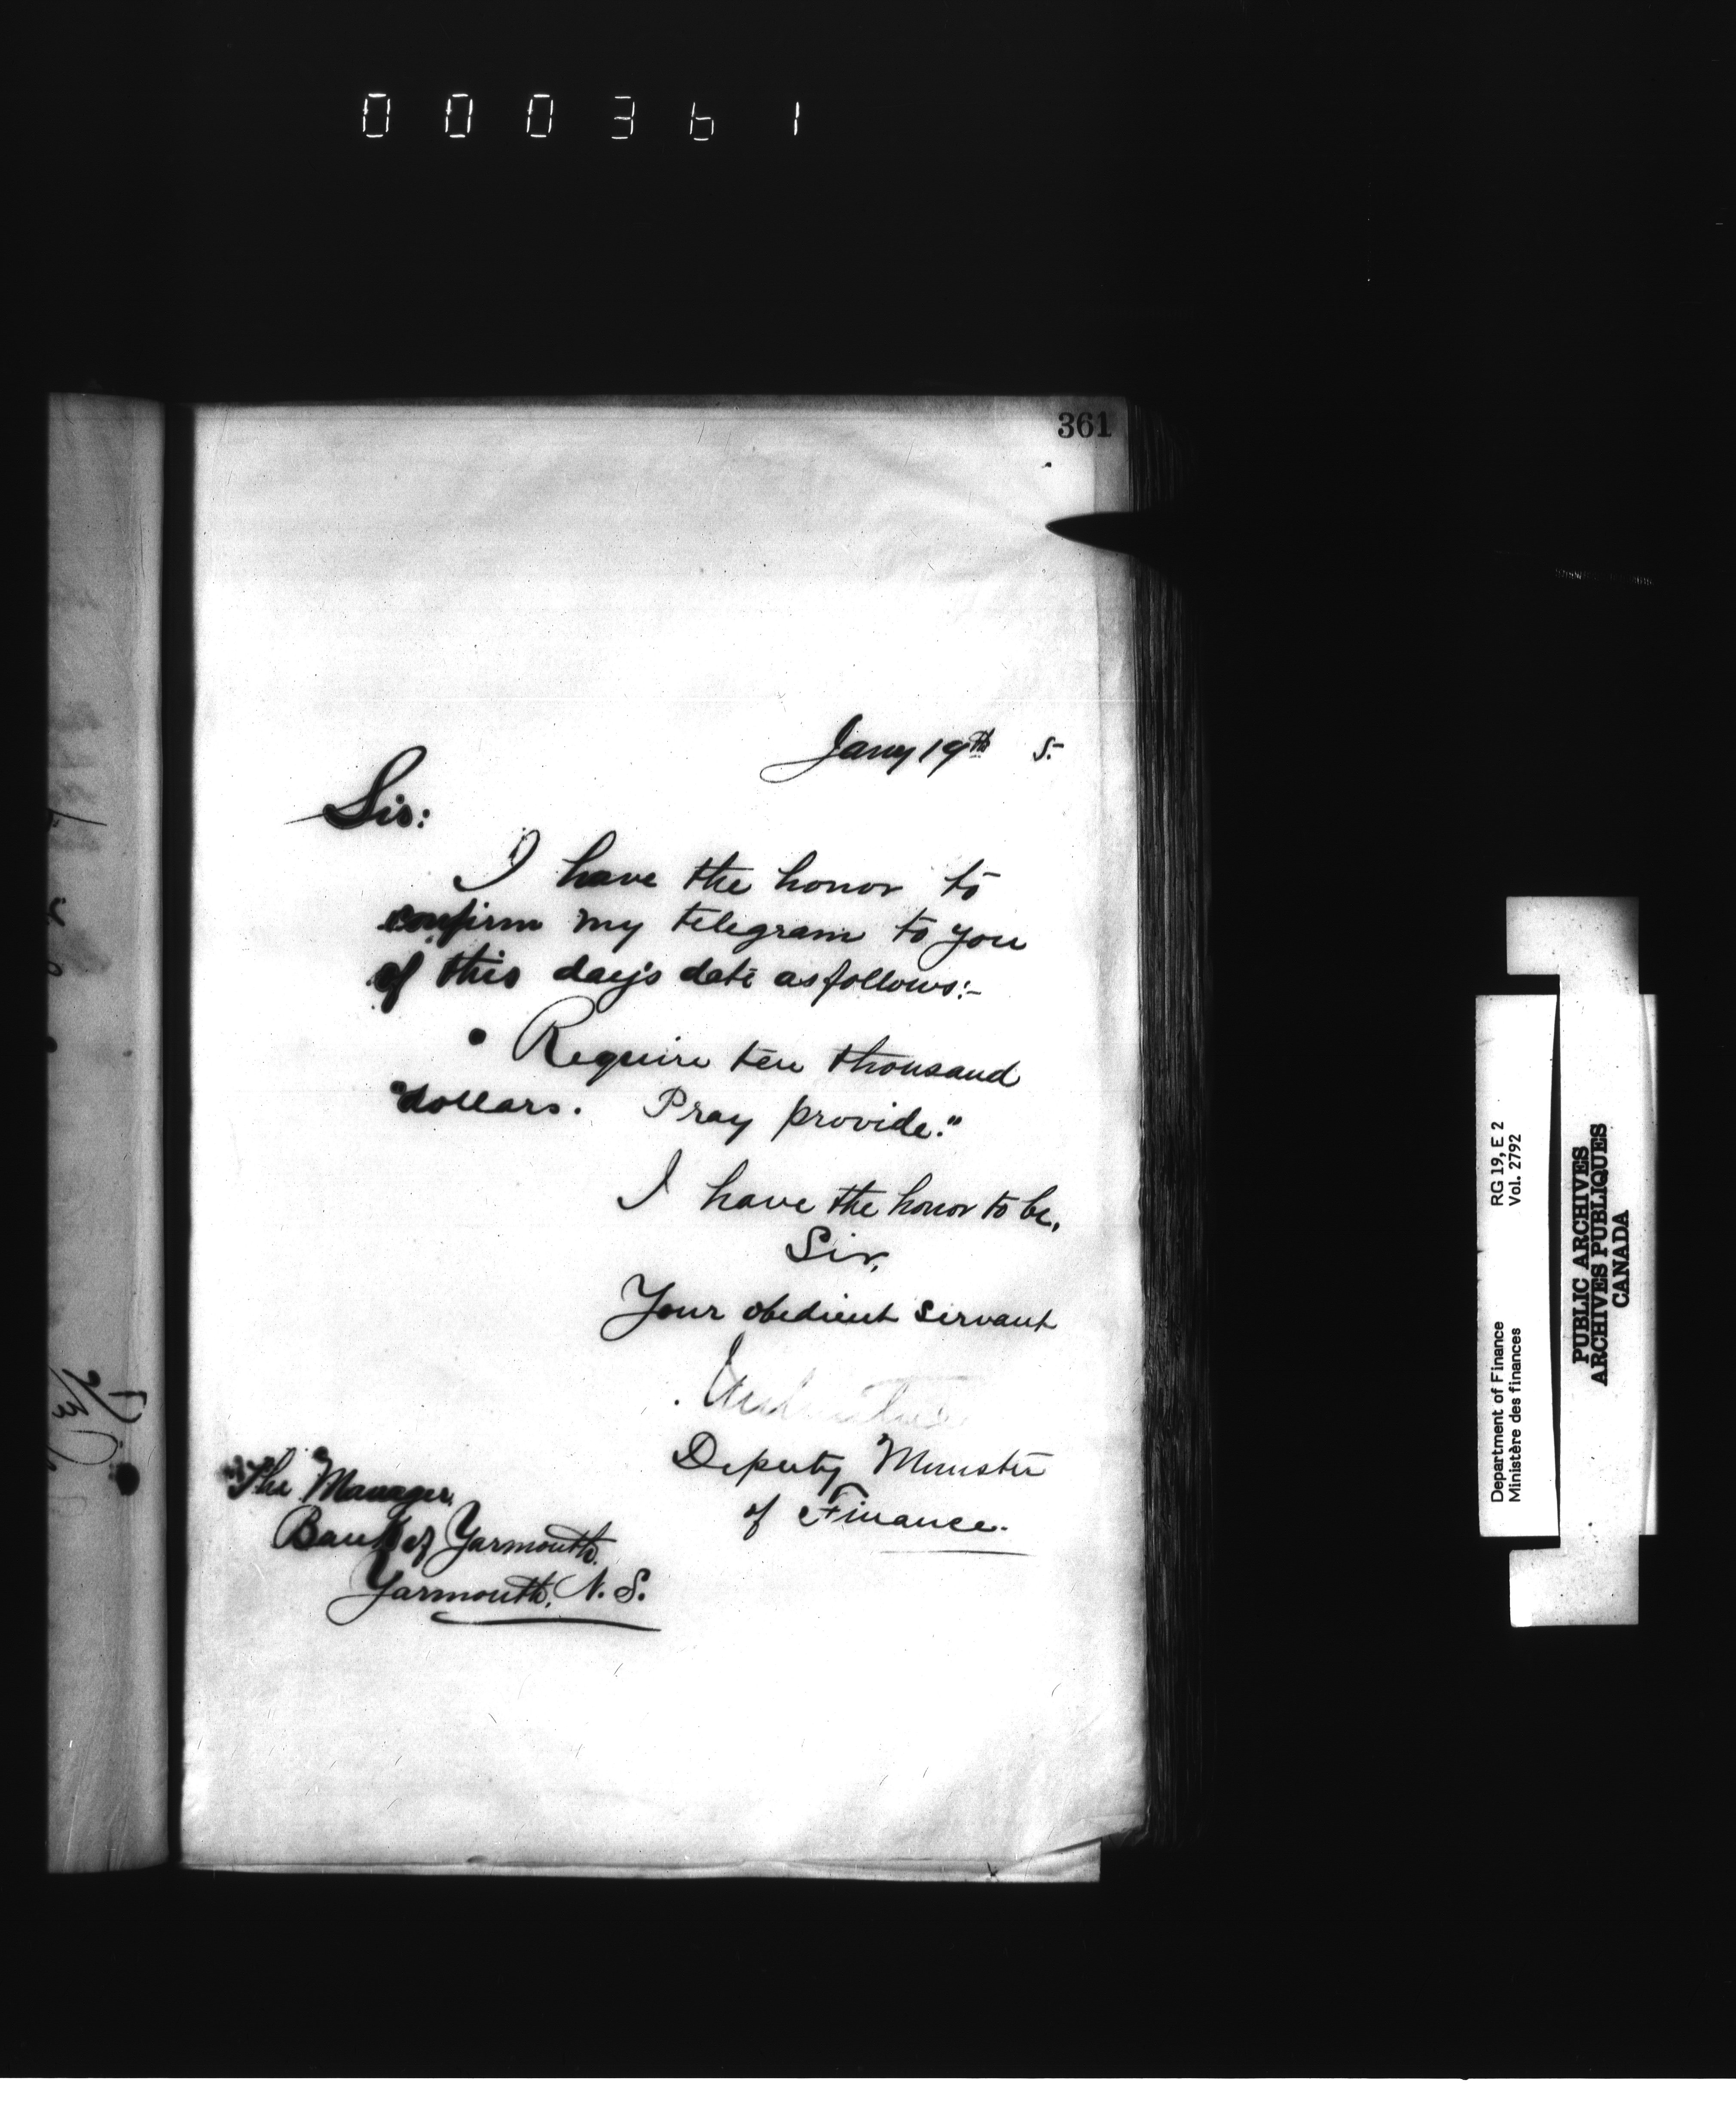 000361
361
Jany 19th 5.
Sir:
I have the honor to
confirm my telegram to you
of this day's date as follows:-
" Require ten thousand
"dollars. Pray provide."
I have the honor to be,
Sir,
Your obedient servant
Deputy Minister
of Finance.
The Manager,
Bank of Yarmouth,
Yarmouth, N. S.
Department of Finance RG 19, E 2
Ministère des finances Vol. 2792
PUBLIC ARCHIVES
ARCHIVES PUBLIQUES
CANADA